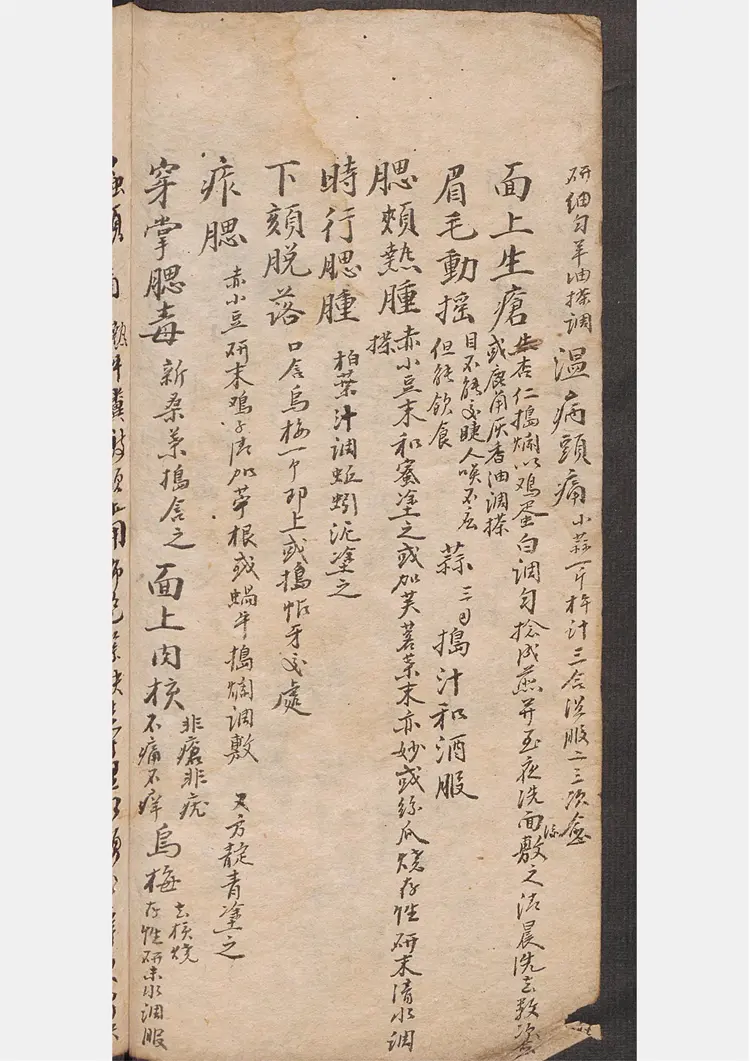 研细匀羊油搽調 温病頭痛 小蒜一斤杵汁三合頓服二三次愈
面上生瘡 生杏仁搗爛以鸡蛋白调匀捻成燕并至夜洗面敷之清晨洗去数次愈
或鹿角灰香油调搽
眉毛動摇 目不能交睫人唤不应
但能飲食 蒜三ヨ搗汁和酒服
腮頰熱腫 赤小豆末和蜜塗之或加芙蓉葉末亦妙或絲瓜燒存性研末清水调
搽
時行腮腫 柏葉汁調蚯蚓泥塗之
下頦脱落 口含烏梅一个即上或搗帖牙交處
痄腮 赤小豆研末鸡子清加苧根或蝸牛搗爛調敷 又方靛青塗之
穿掌腮毒 新桑葉搗含之 面上肉核 非瘡非疣
不痛不痒 烏梅 去核烧
存性研末水调服